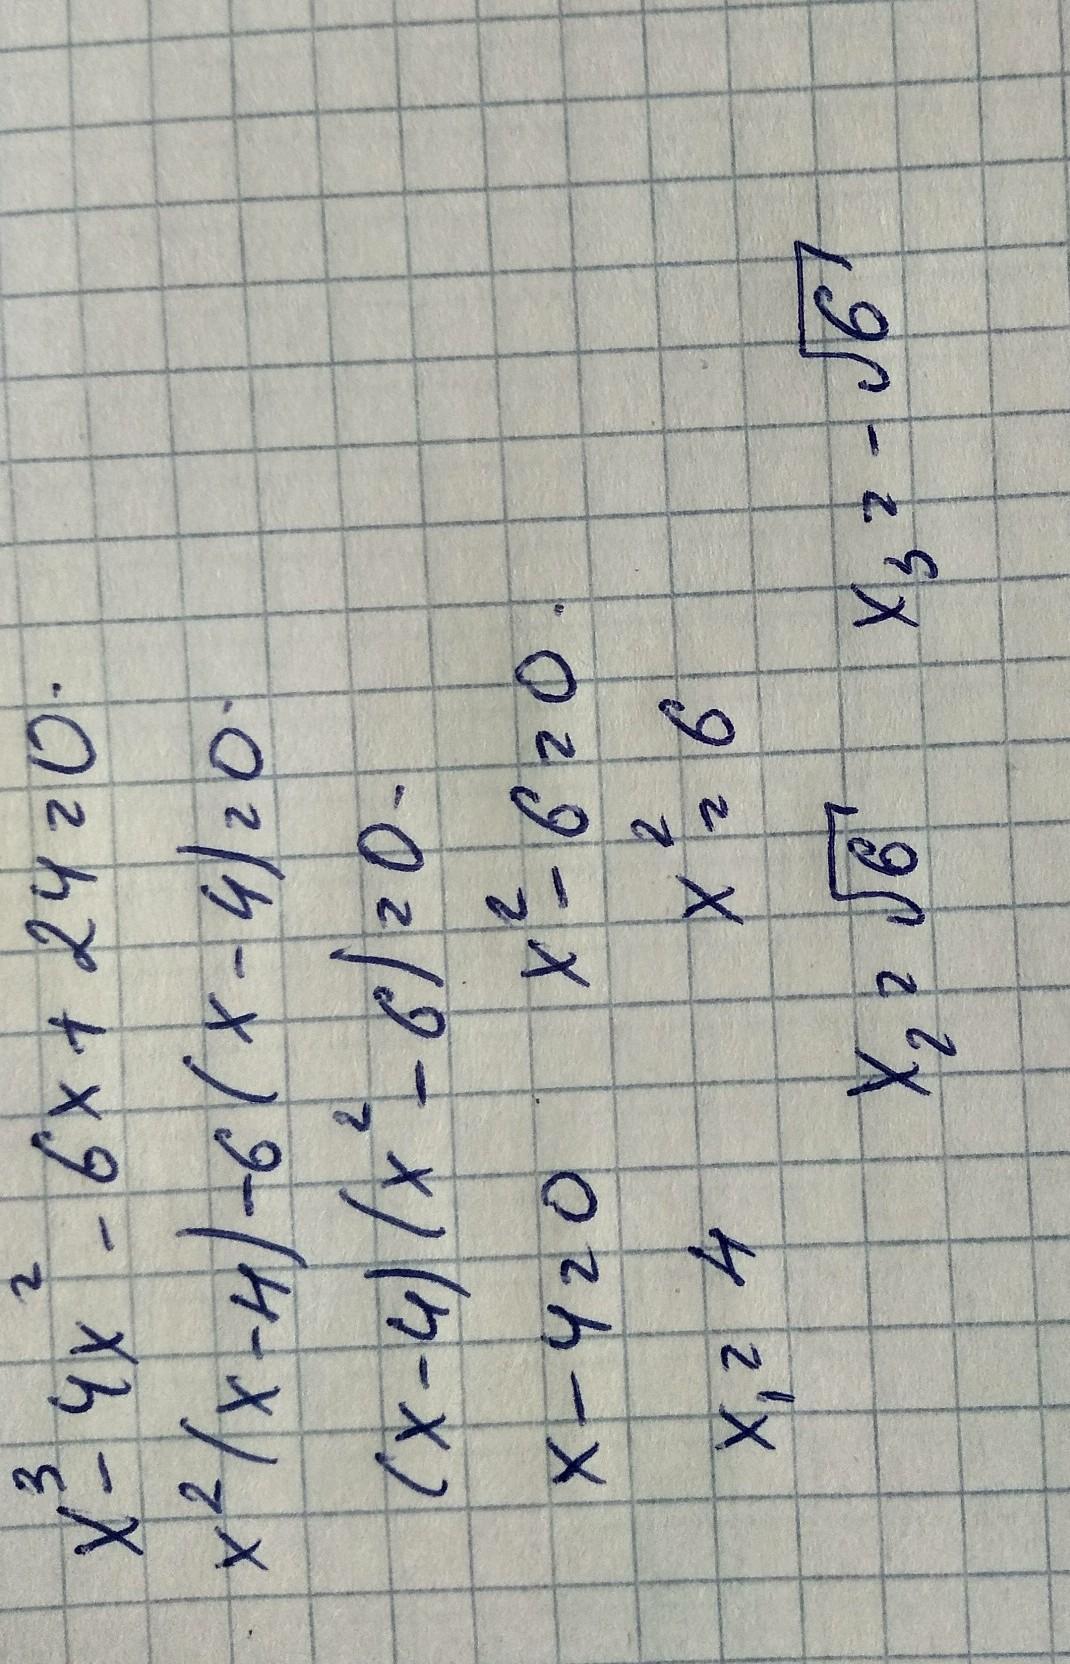 x³ - 4x² - 6x + 24 = 0.
x²(x - 4) - 6(x - 4) = 0.
(x - 4)(x² - 6) = 0.
x - 4 = 0 x² - 6 = 0.
x₁ = 4 x² = 6
x₂ = √6 x₃ = -√6